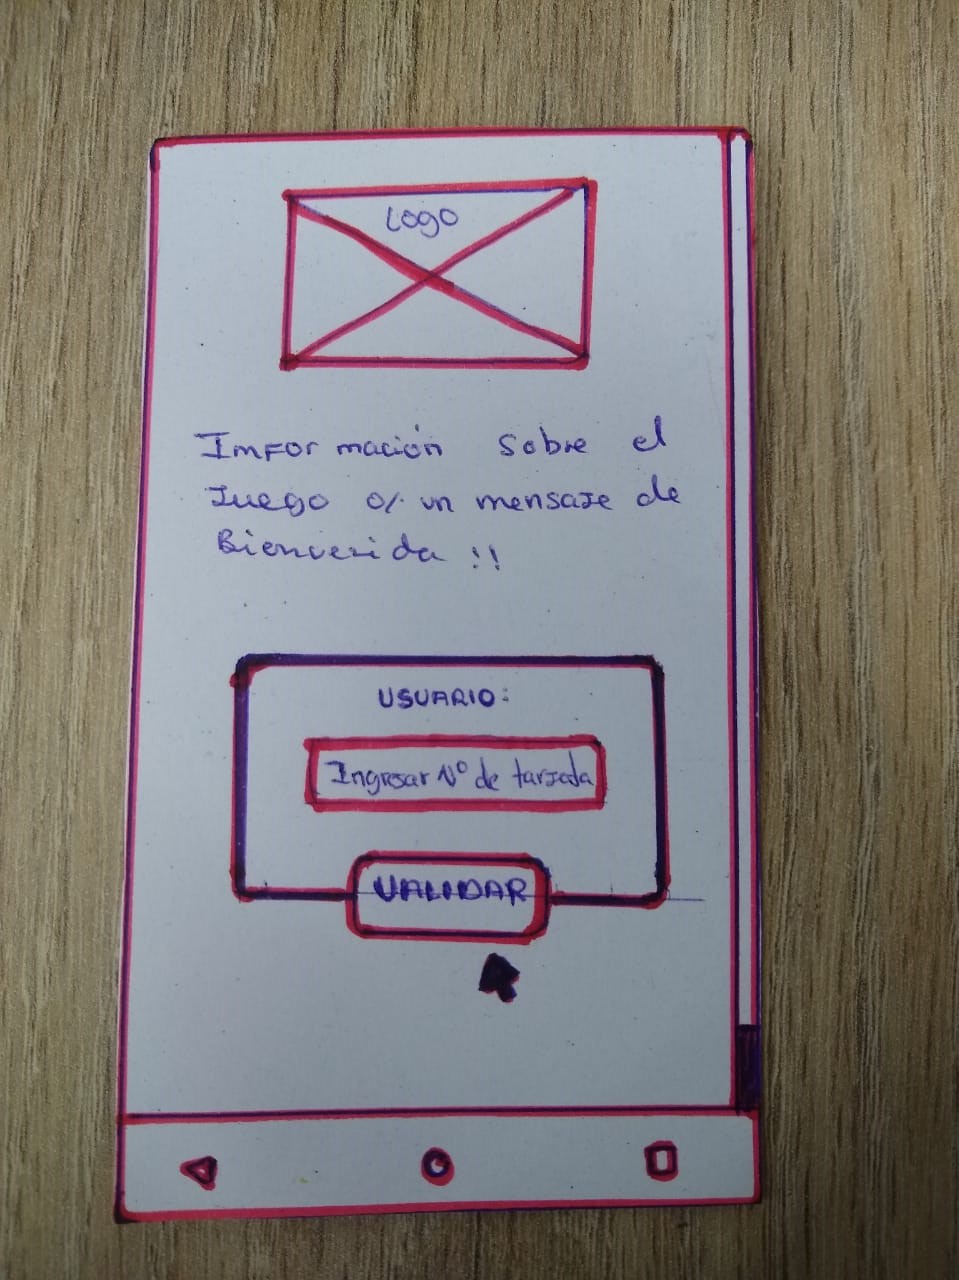 Logo
Imformación sobre el
Juego o/ un mensaje de
Bienvenida !!
USUARIO:
Ingresar N° de tarjada
VALIDAR